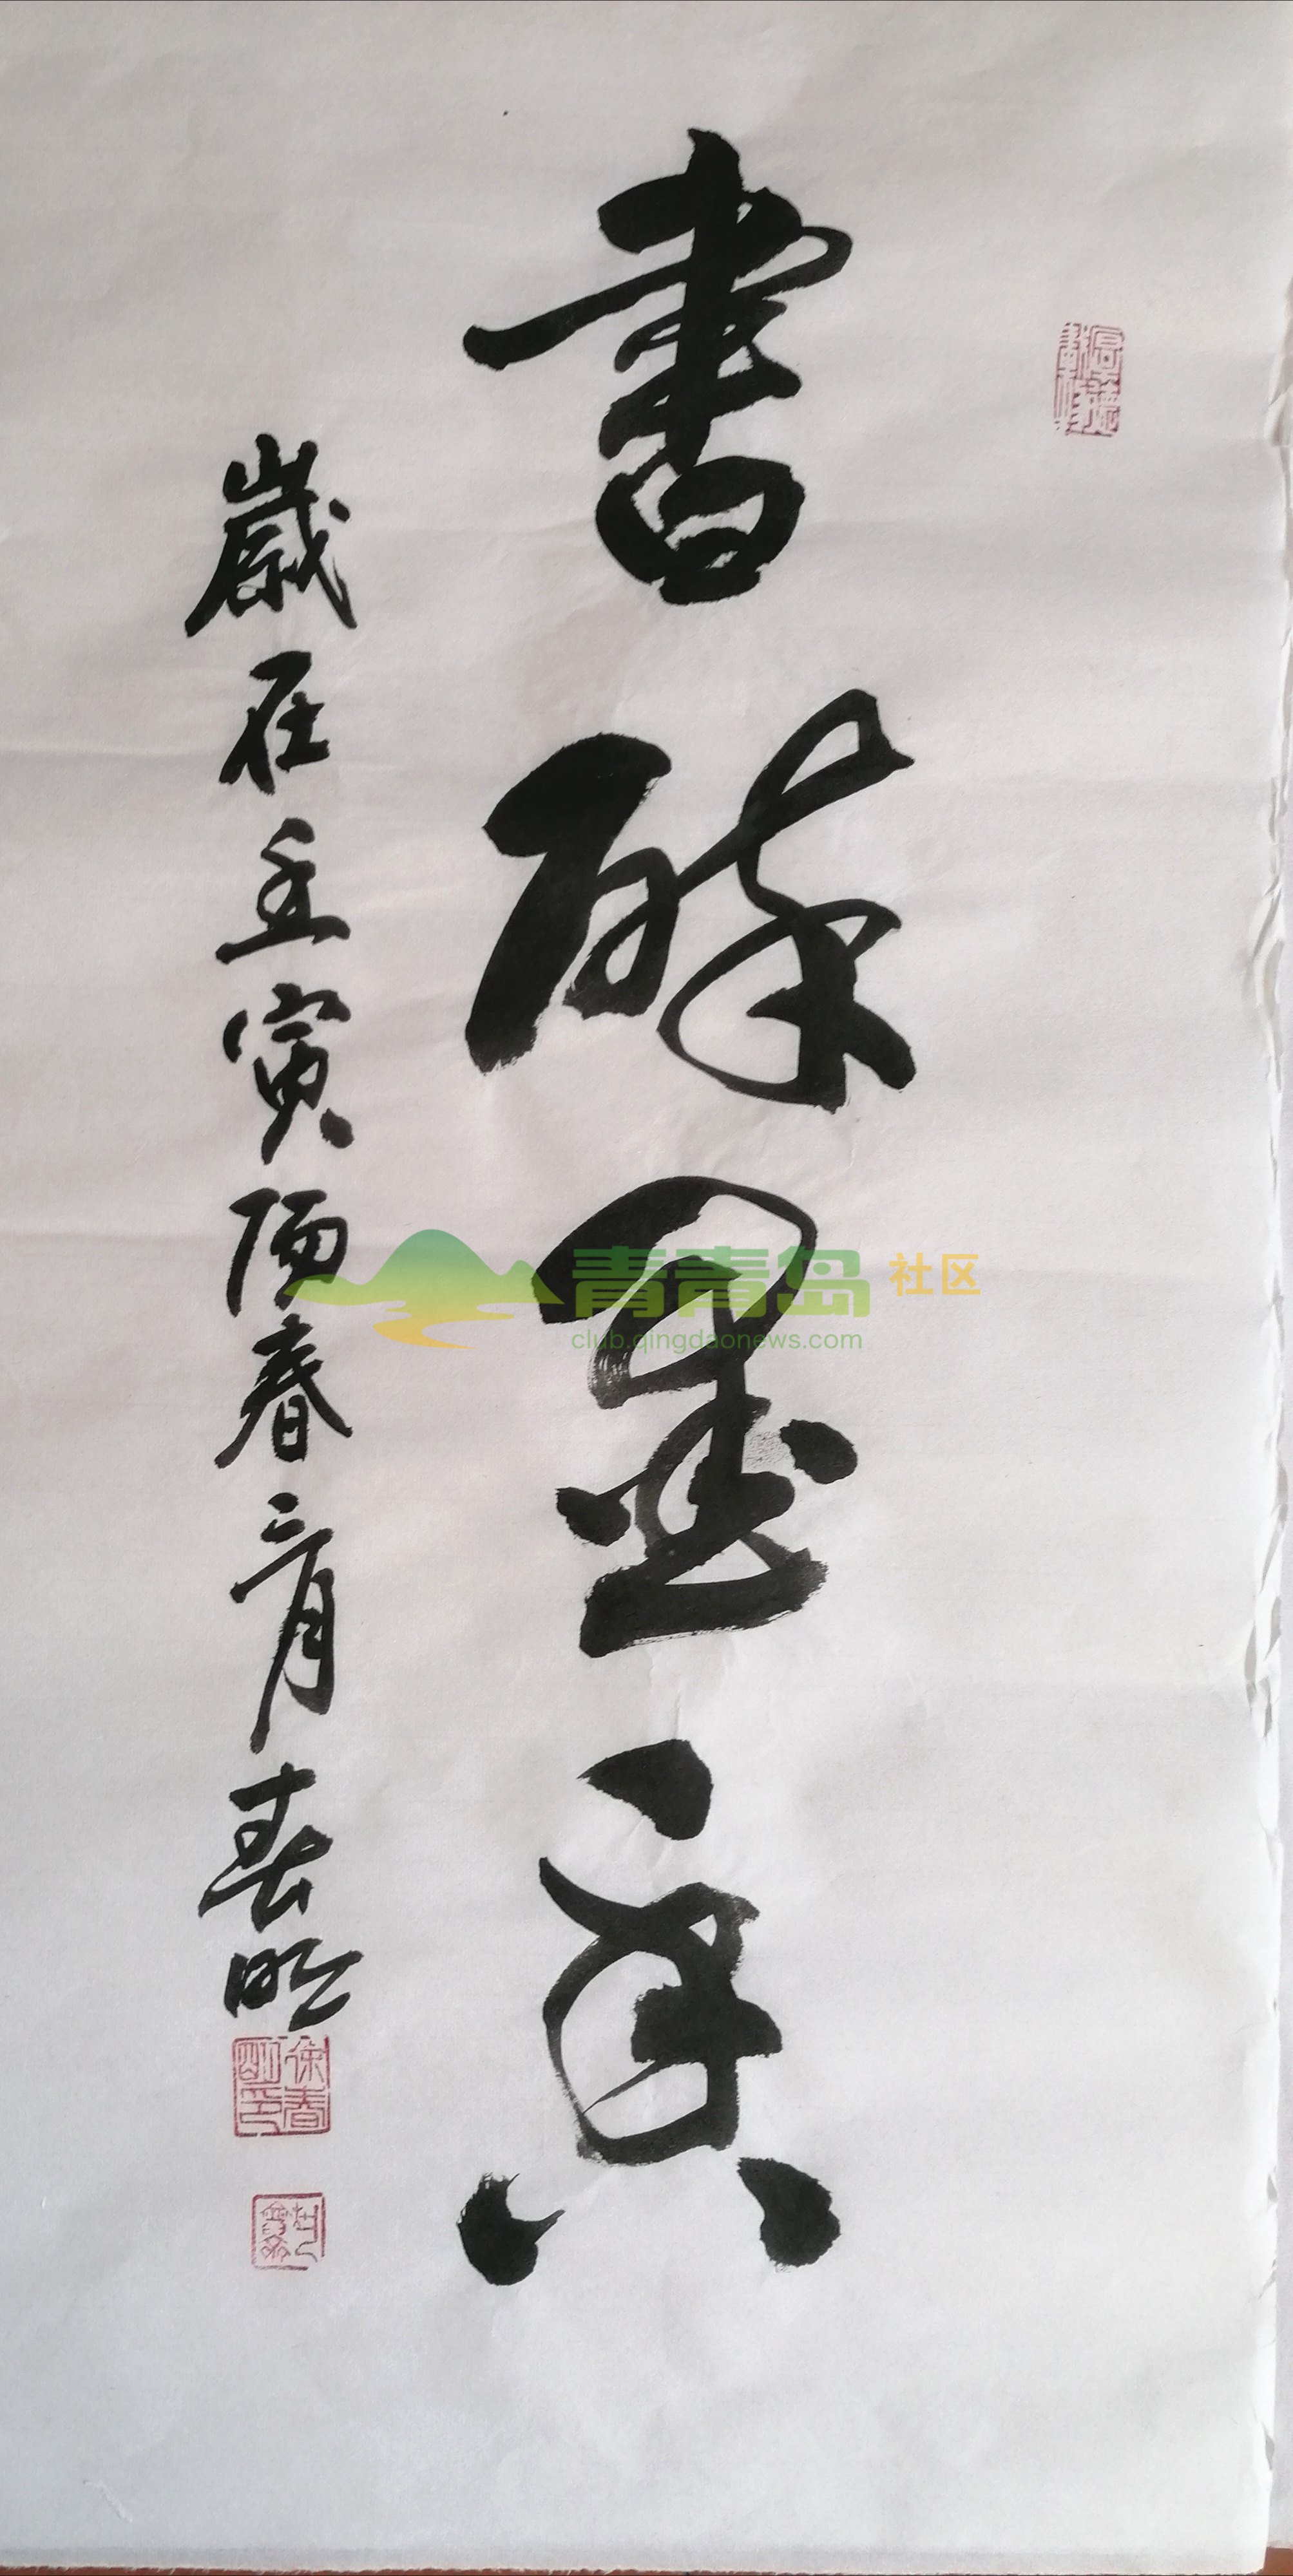 書醉墨香
歲在壬寅陽春二月春明
徐春明印
青青岛 社区
club.qingdaonews.com